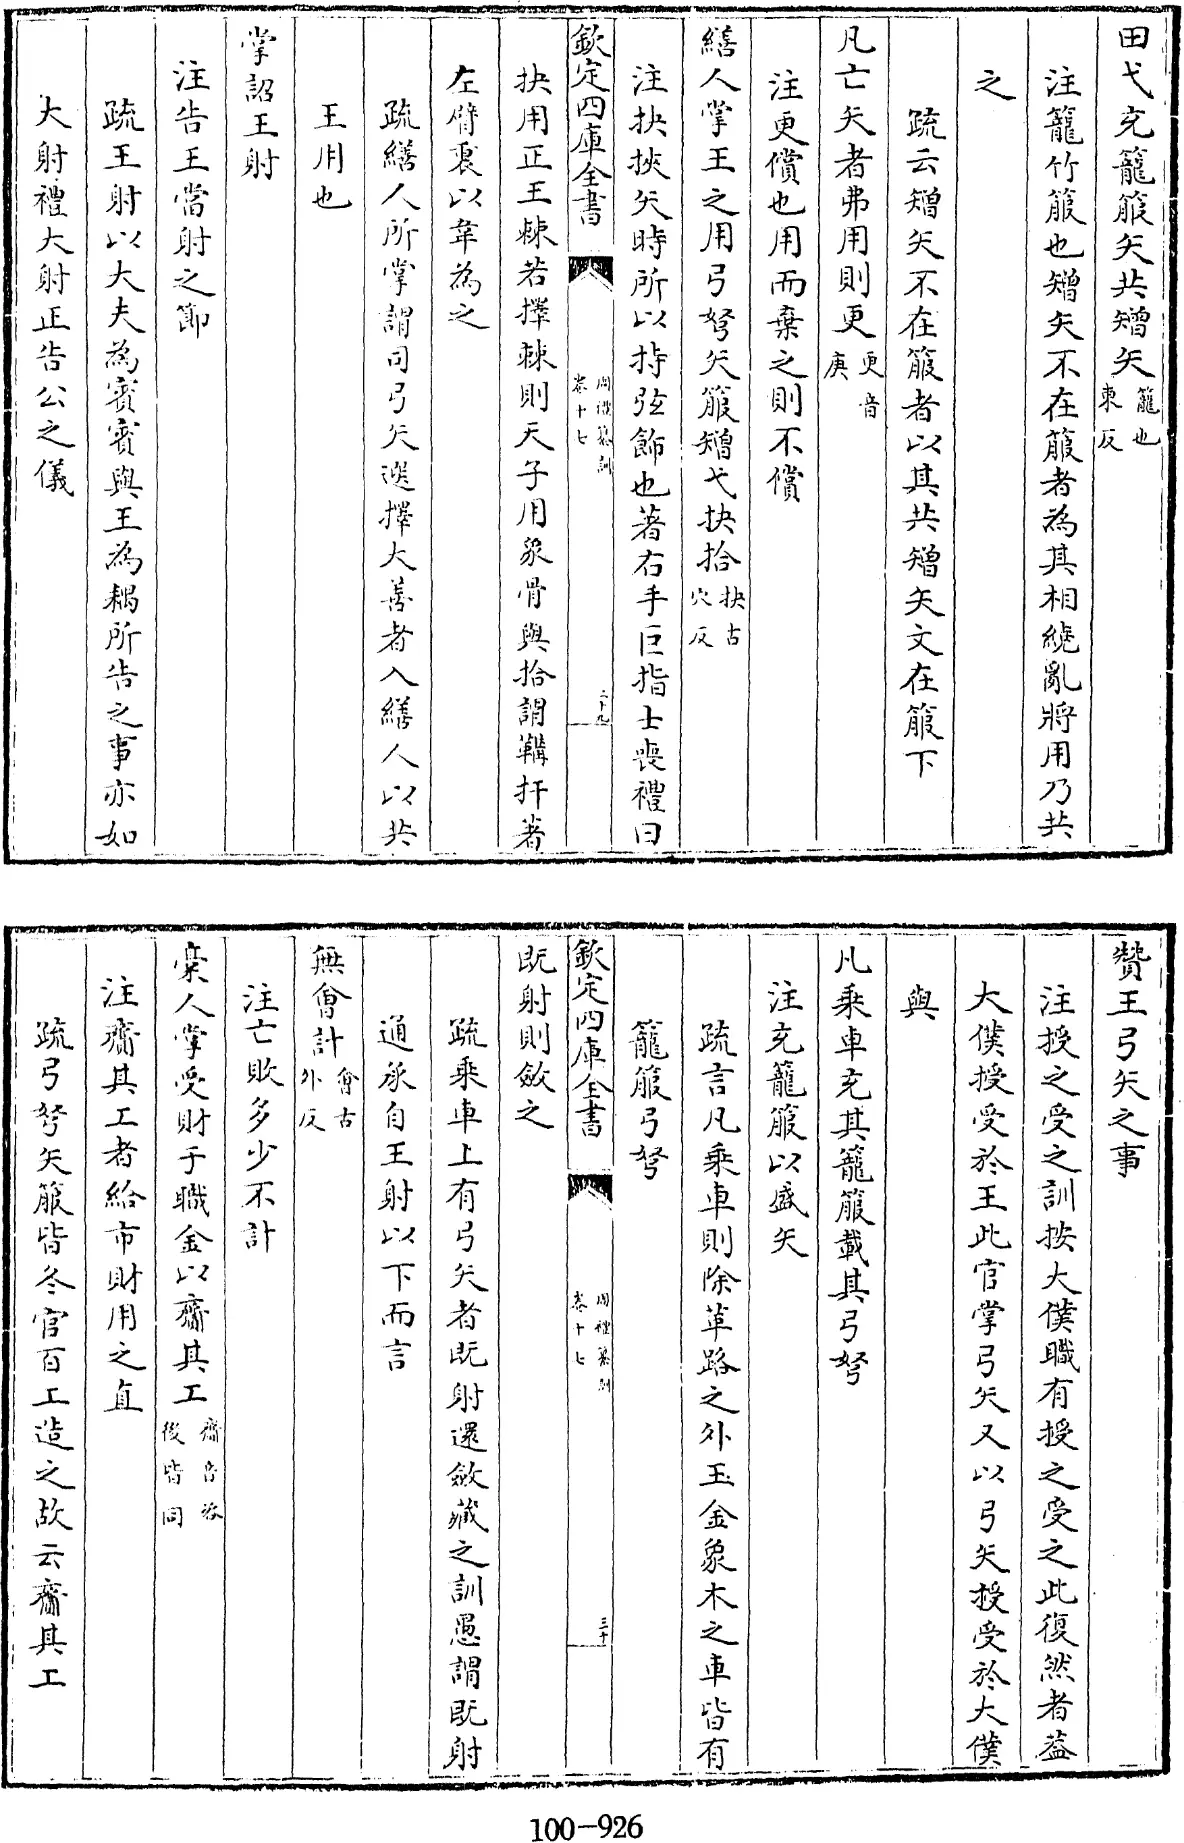 田弋充籠箙矢共矰矢籠也東反
注籠竹箙也矰矢不在箙者為其相繞亂將用乃共
之
疏云矰矢不在箙者以其共矰矢文在箙下
凡亡矢者弗用則更更音庚
注更償也用而棄之則不償
繕人掌王之用弓弩矢箙矰弋抉拾抉古穴反
注抉挾矢時所以持弦飾也著右手巨指士喪禮曰
欽定四庫全書
周禮纂訓
卷十七
二十九
抉用正王棘若擇棘則天子用象骨與拾謂韝扞著
左臂裏以韋為之
疏繕人所掌謂司弓矢選擇大善者入繕人以共
王用也
掌詔王射
注告王當射之節
疏王射以大夫為賓賓與王為耦所告之事亦如
大射禮大射正告公之儀
贊王弓矢之事
注授之受之訓按大僕職有授之受之此復然者蓋
大僕授受於王此官掌弓矢又以弓矢授受於大僕
與
凡乘車充其籠箙載其弓弩
注充籠箙以盛矢
疏言凡乘車則除革路之外玉金象木之車皆有
籠箙弓弩
欽定四庫全書
周禮纂訓
卷十七
三十
既射則斂之
疏乘車上有弓矢者既射還斂藏之訓愚謂既射
通承自王射以下而言
無會計會古外反
注亡敗多少不計
槀人掌受財于職金以齎其工齎音咨後皆同
注齎其工者給市財用之直
疏弓弩矢箙皆冬官百工造之故云齎其工
100-926